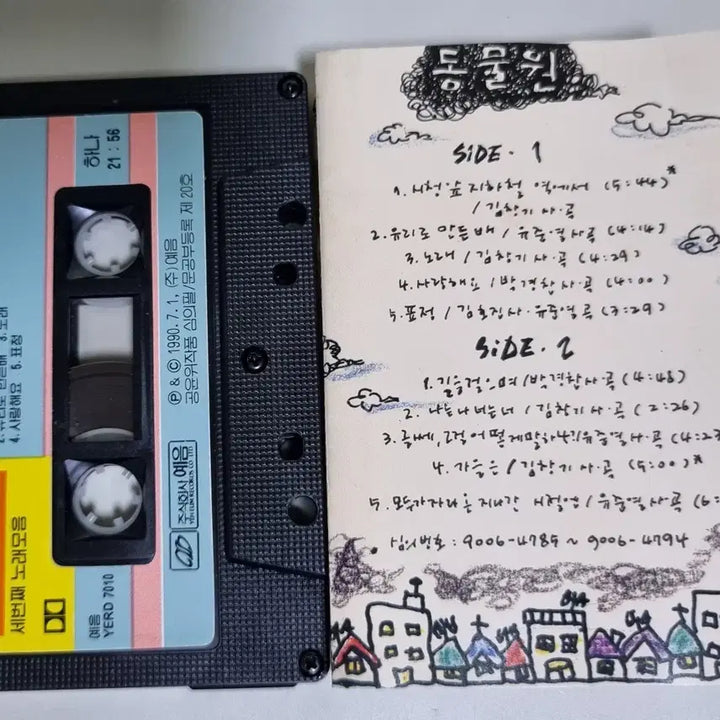 하나
21 : 56
3. 노래
4. 사랑해요 5. 표정
Ⓟ & © 1990. 7. 1, (주)예음
공윤위작품 심의필/문공부등록 제 20호
주식회사 예음
YEH EUM RECORDS CO., LTD.
세번째 노래모음
예음
YERD 7010
동물원
SiDE · 1
1. 시청 앞 지하철 역에서 (5:44)*
/ 김창기 사·곡
2. 유리로 만든 배 / 유준열 사·곡 (4:14)
3. 노래 / 김창기 사·곡 (4:29)
4. 사랑해요 / 박경찬 사·곡 (4:00)
5. 표정 / 김호집사·유준열곡 (3:29)
SiDE · 2
1. 길을 걸으며 / 박경찬 사·곡 (4:48)
2. 나는 나 너는 너 / 김창기 사·곡 (2:26)
3. 글쎄, 그걸 어떻게 말하나? / 유준열 사·곡 (4:23
4. 가을은 / 김창기 사·곡 (5:00)*
5. 모두가 자라온 지나간 시절엔 / 유준열 사·곡 (6:
• 심의번호 : 9006-4785 ~ 9006-4794